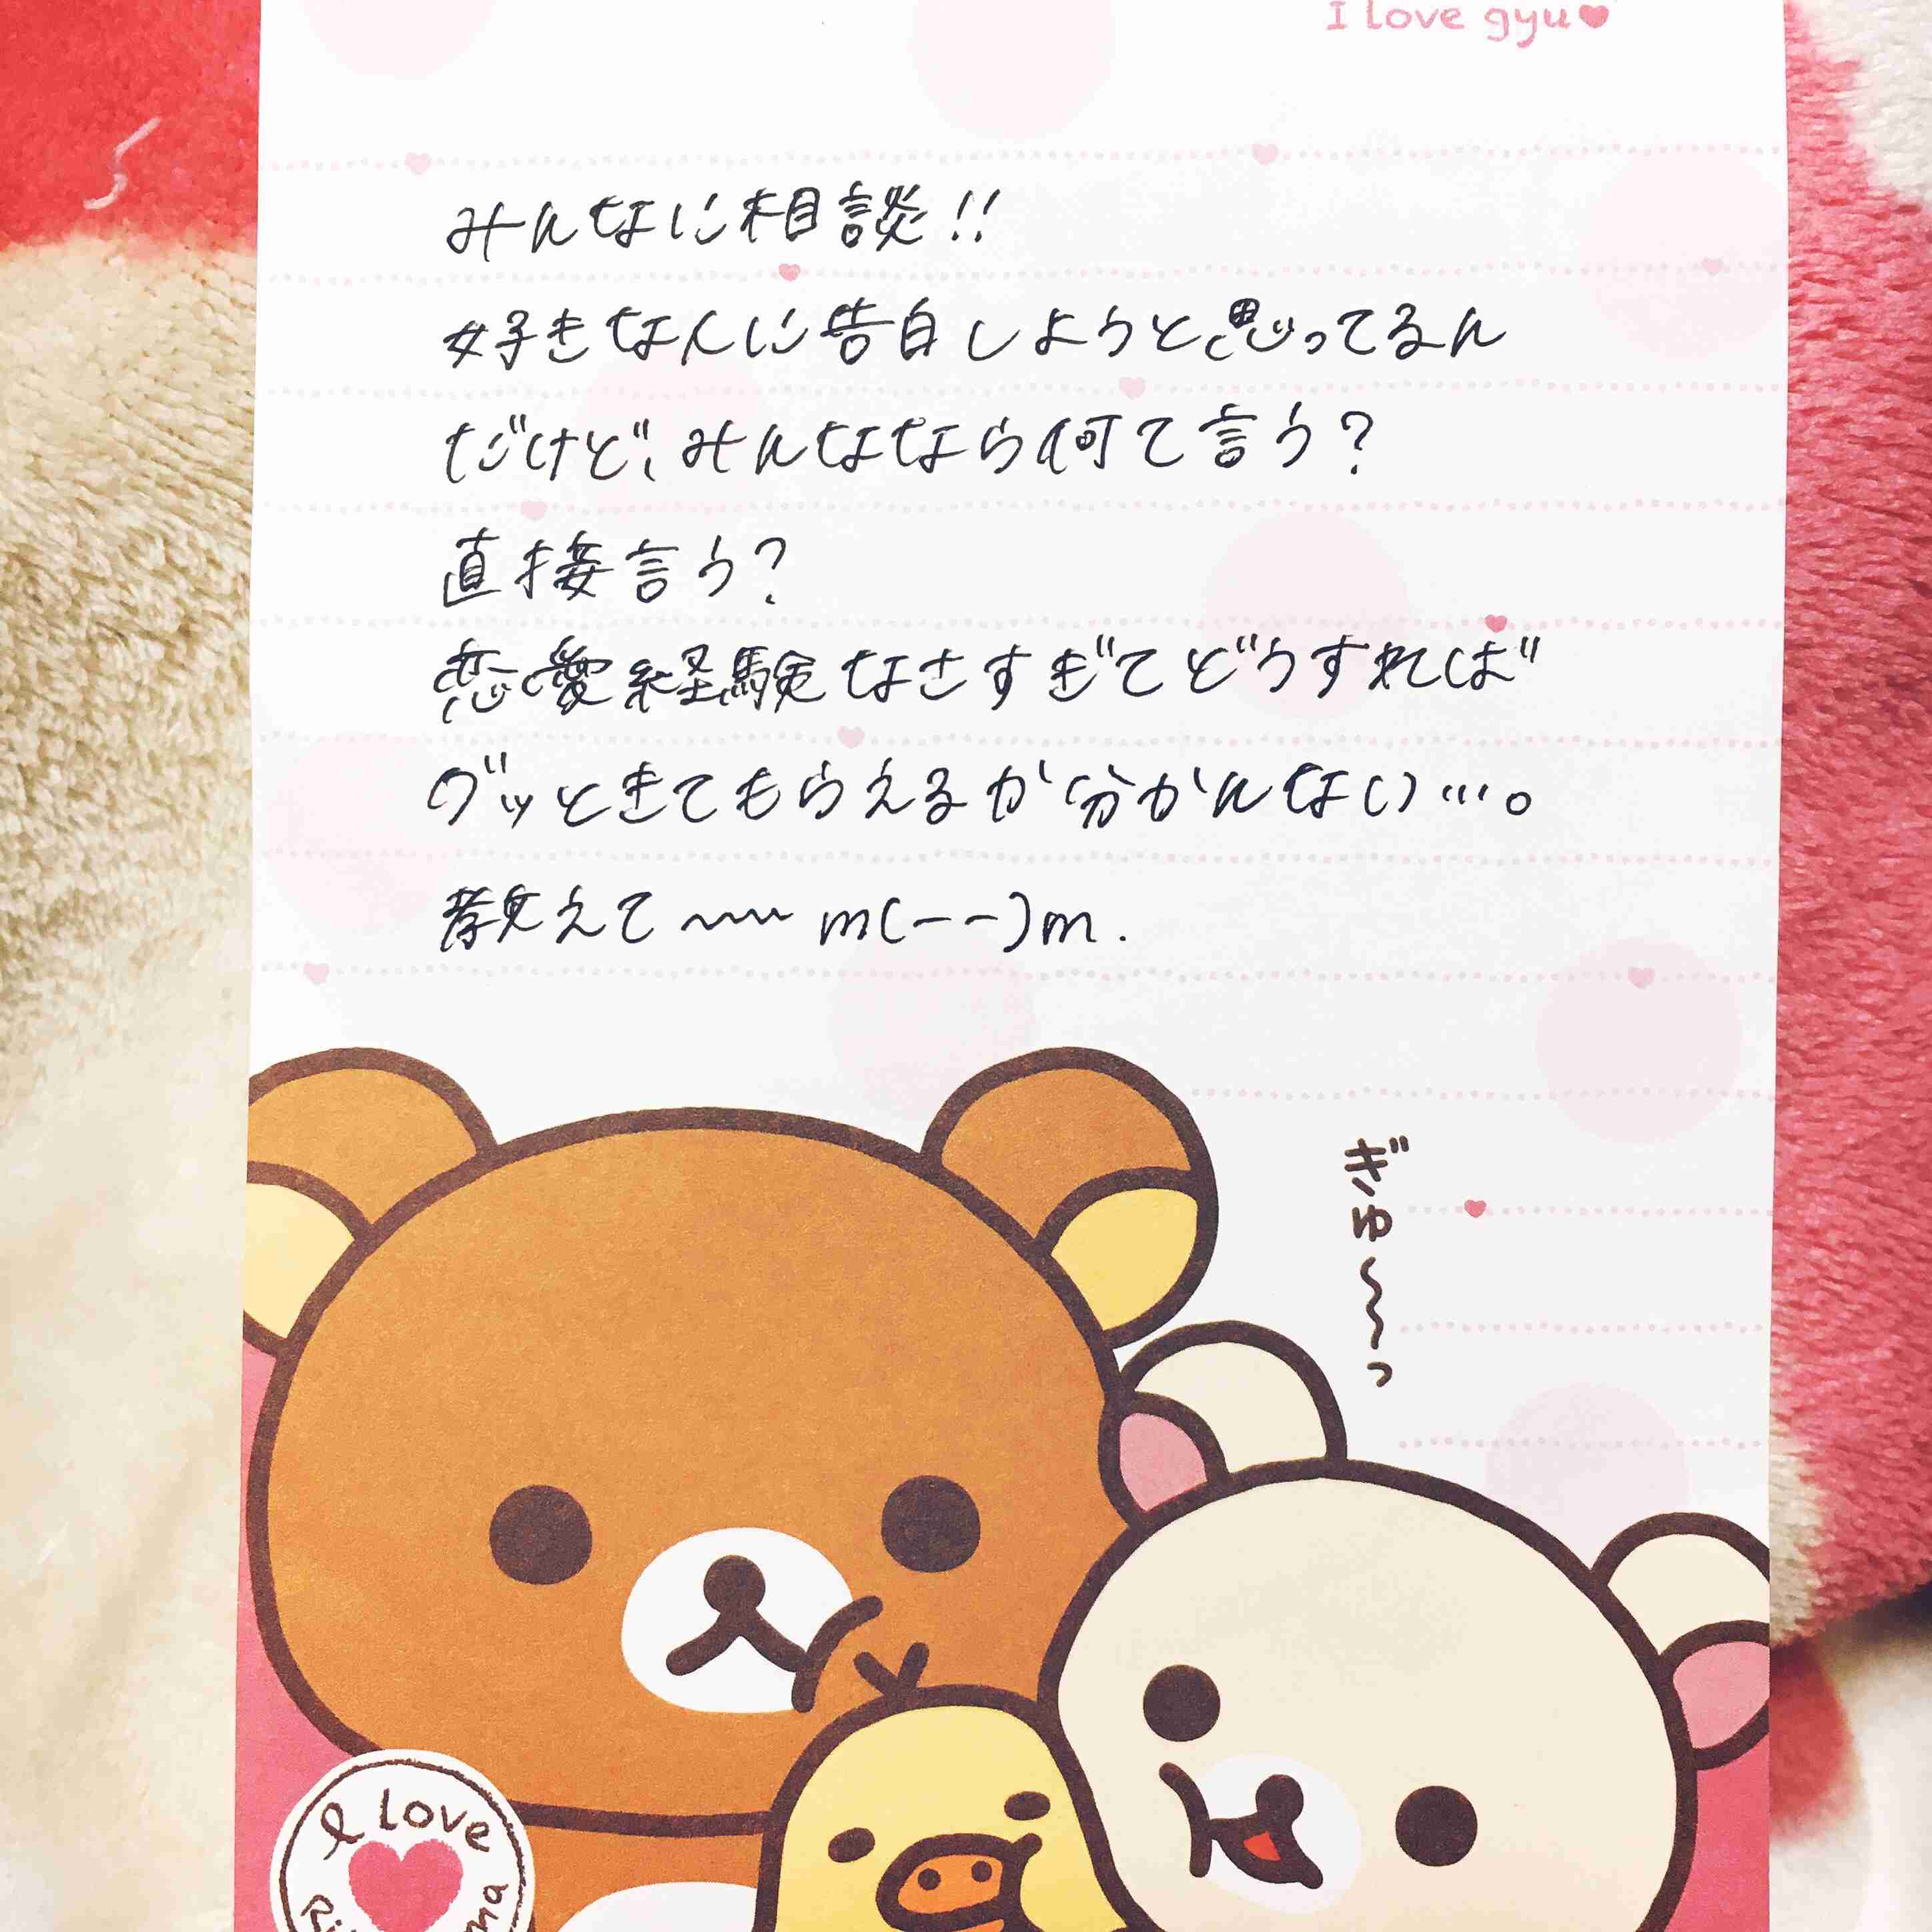 I love gyu♥
みんなに相談!!
好きな人に告白しようと思ってるん
だけど、みんななら何て言う?
直接言う?
恋愛経験なさすぎてどうすれば
グッときてもらえるか分かんない…。
教えて〰〰 m(--)m.
ぎゅ〜〜っ
I LOVE